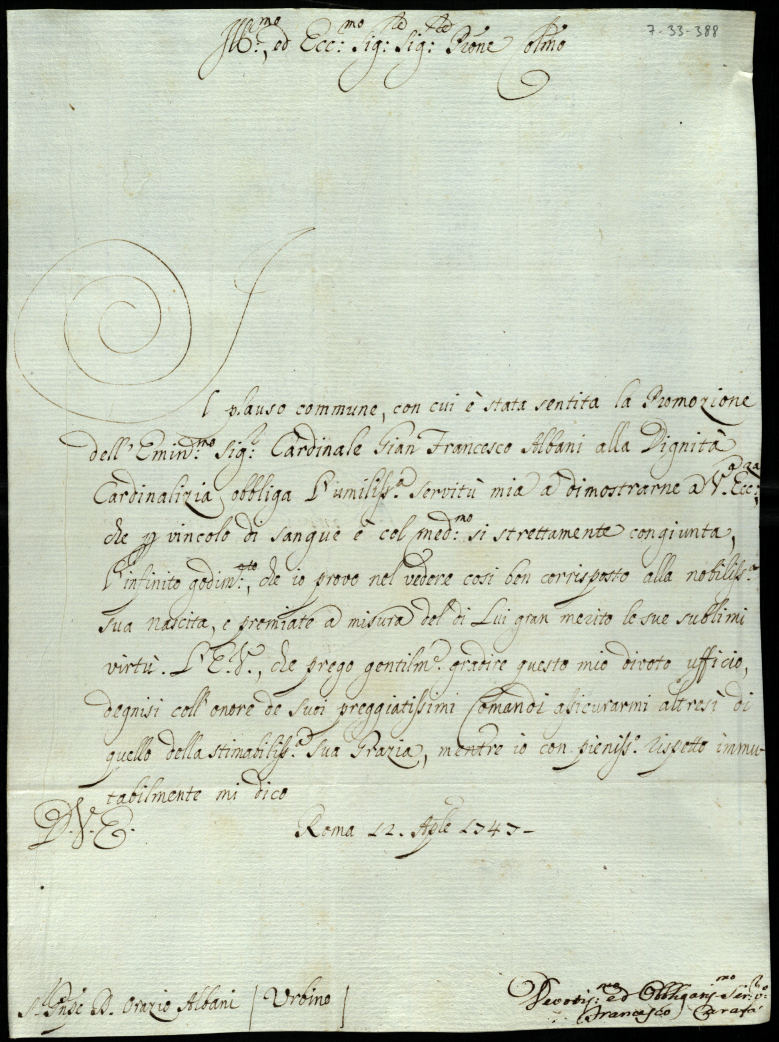 7-33-388
Ill:mo, ed Ecc:mo Sig:re Sig:re Prone Colmo
Il plauso commune, con cui è stata sentita la Promozione
dell'Emin:mo Sig:r Cardinale Gian Francesco Albani alla Dignità
Cardinalizia obbliga l'umiliss:a servitù mia a dimostrarne a V:a Ecc:za,
che p vincolo di sangue è col med:mo si strettamente congiunta,
l'infinito godim:to, che io provo nel vedere cosi ben corrisposto alla nobiliss:a
sua nascita, e premiate a misura del di Lui gran merito le sue sublimi
virtù. L'E.V., che prego gentilm:e gradire questo mio divoto ufficio,
degnisi coll'onore de suoi preggiatissimi Comandi assicurarmi altresì di
quello della stimabiliss:a sua Grazia, mentre io con pieniss:o rispetto immu-
tabilmente mi dico
D.V.E. Roma 12. Aple 1747-
Devotis:mo ed Obbligatis:mo Ser:re v:o
S:r Pnpe D. Orazio Albani | Urbino | Francesco Carafa